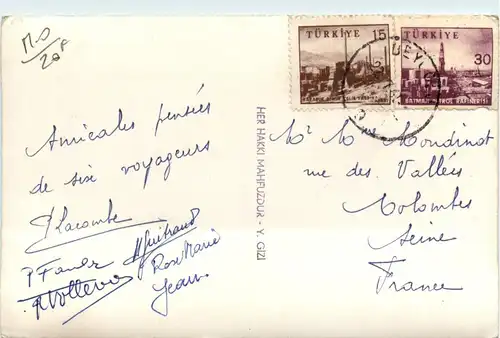 20F
TÜRKİYE
15
TÜRKİYE
30
BATMAN PETROL RAFİNERİSİ
Amicales pensées
de six voyageurs
Placombe
Rose Marie
Jean
HER HAKKI MAHFUZDUR - Y. GİZİ
Mr M Mondinot
rue des Vallées
Colombes
Seine
France